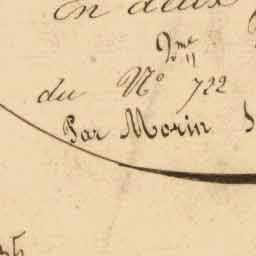 En deux
2me
du No 722
Par Morin